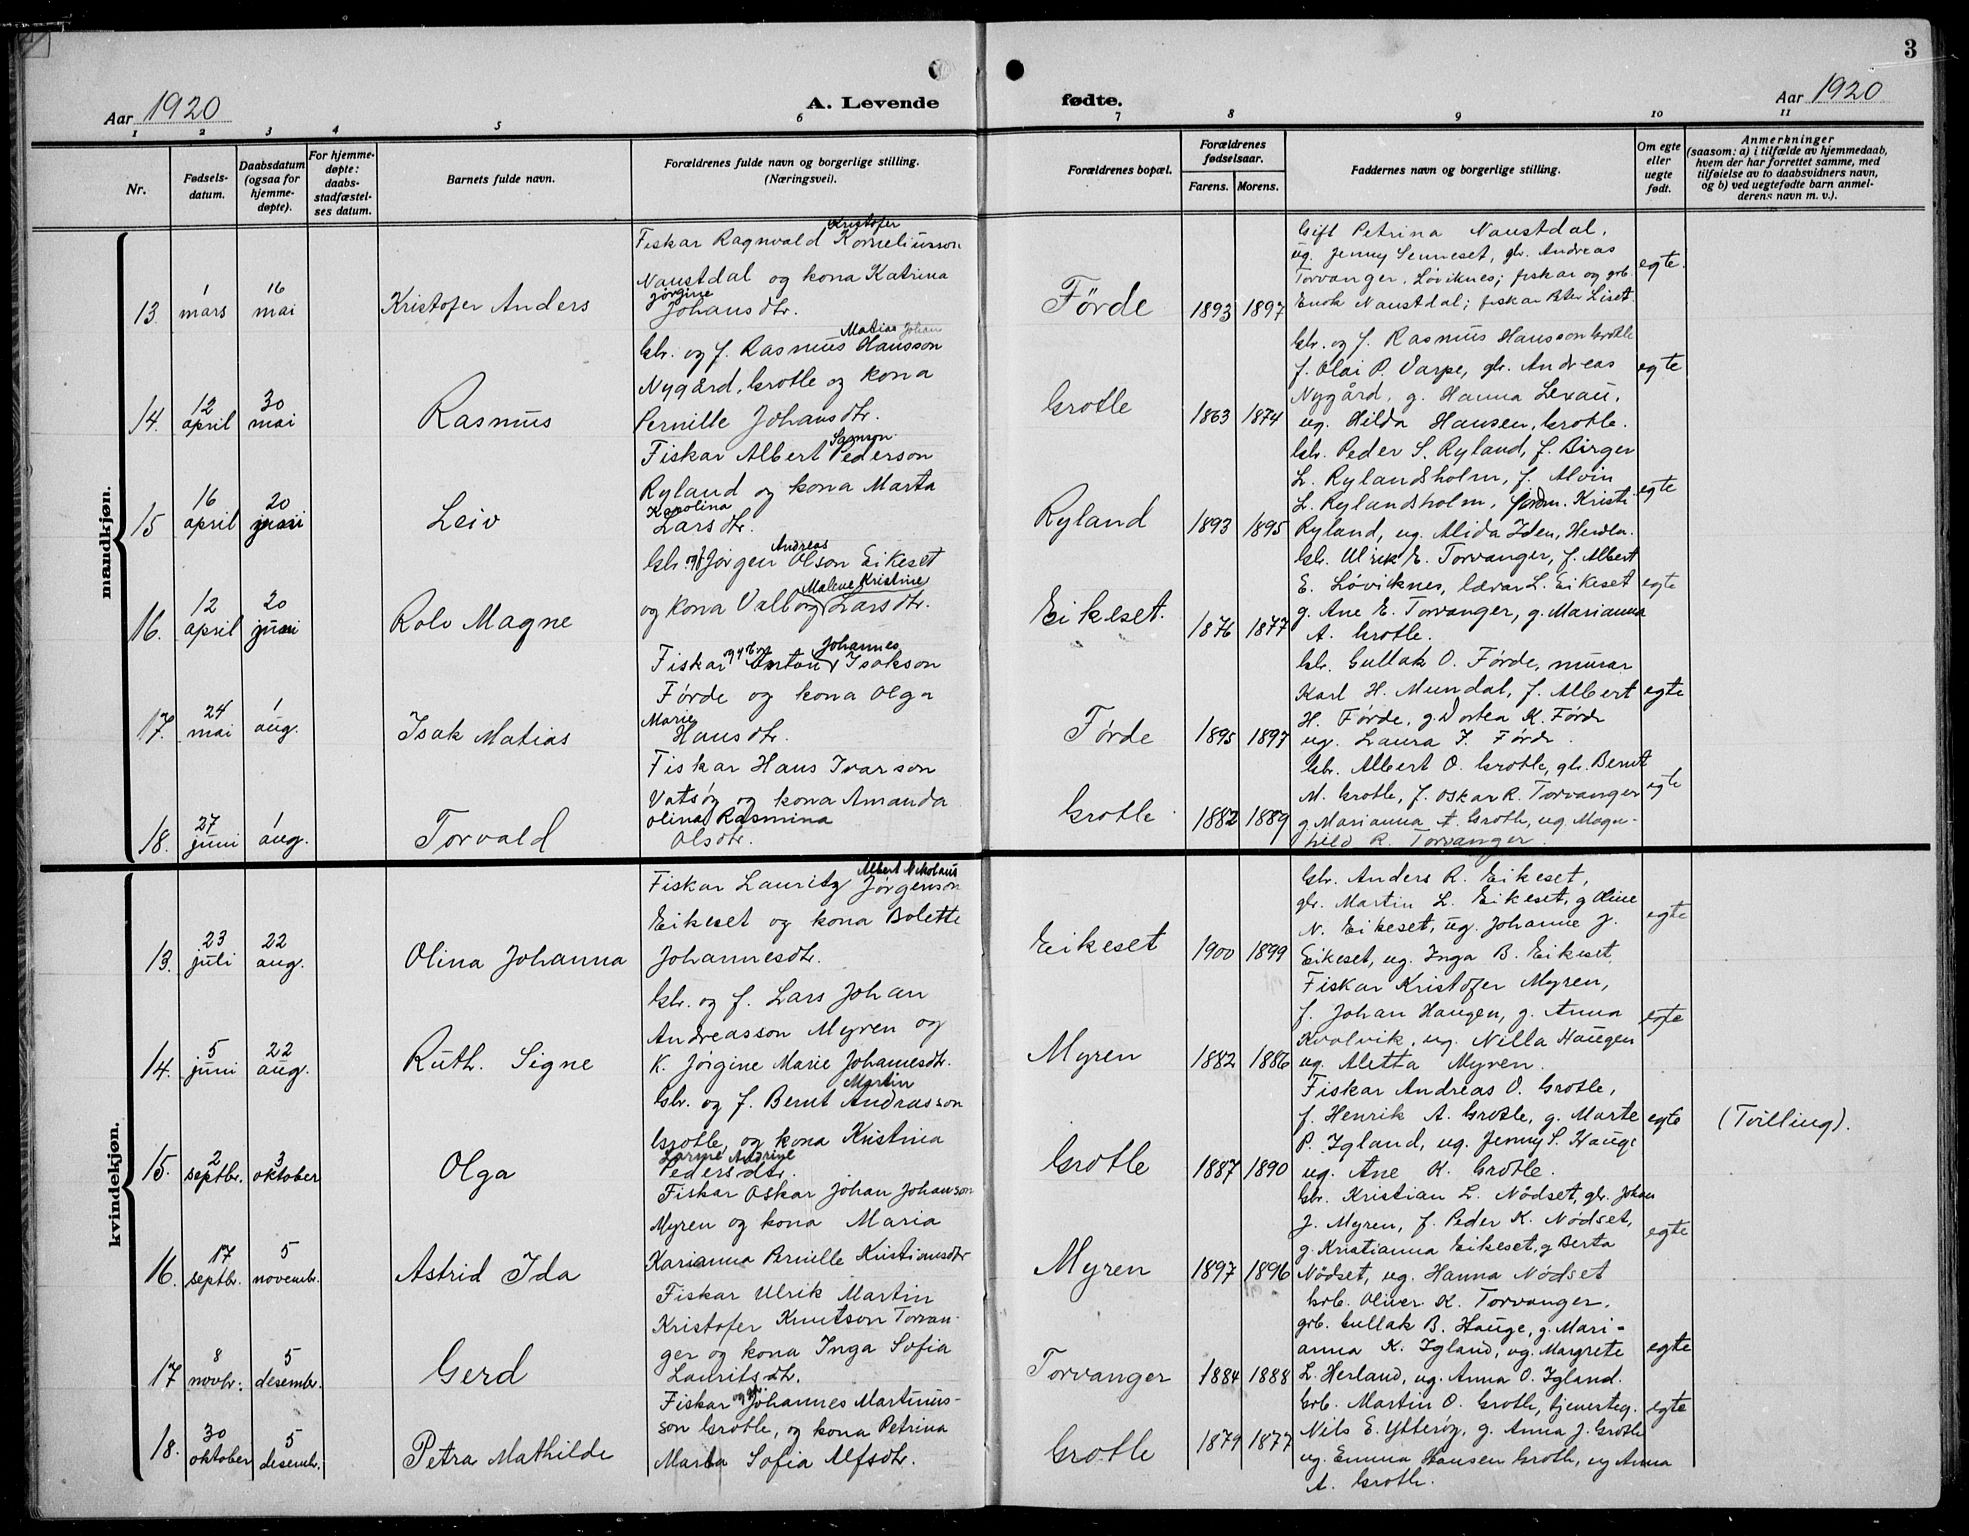 3
Aar 1920
A. Levende
fødte.
Aar 1920
1 2 3 4 5 6 7 8 9 10 11
Nr.
Fødsels-
datum.
Daabsdatum
(ogsaa for
hjemme-
døpte).
For hjemme-
døpte:
daabs-
stadfæstel-
ses datum.
Barnets fulde navn.
Forældrenes fulde navn og borgerlige stilling.
(Næringsvei).
Forældrenes bopæl.
Forældrenes
fødselsaar.
Farens. Morens.
Faddernes navn og borgerlige stilling.
Om egte
eller
uegte
født.
Anmerkninger
(saasom: a) i tilfælde av hjemmedaab,
hvem der har forrettet samme, med
tilføielse av to daabsvidners navn,
og b) ved uegtefødte barn anmel-
derens navn m. v.).
mandkjøn.
13.
1
mars
16
mai
Kristofer Anders
Kristofer
Fiskar Ragnvald Korneliusson
Naustdal og kona Katrina
Jørgine
Johansdtr.
Förde
1893 1897
Gift Petrina Naustdal,
ug. Jenny Senneset, gbr. Andreas
Torvanger, Løviknes; fiskar og grb.
Enok Naustdal; fiskar Peter Liset.
egte.
14.
12
april
30
mai
Rasmus
Matias Johan
Gbr. og f. Rasmus Hansson
Nygård, Grotle og kona
Pernille Johansdtr.
Grotle
1863 1874
Gbr. og f. Rasmus Hansson Grotle
f. Olai P. Varpe, gbr. Andreas
Nygård, g. Hanna Lexau,
ug. Hilda Hansen, Grotle.
egte
15.
16
april
20
juni
Leiv
Samson
Fiskar Albert Pederson
Ryland og kona Marta
Karolina
Larsdtr.
Ryland
1893 1895
Gbr. Peder S. Ryland, f. Birger
L. Rylandsholm, f. Alvin
L. Rylandsholm, Kristi
Ryland, ug. Alida Iden, Herdla.
egte
16.
12
april
20
juni
Rolv Magne
Andreas
Gbr. og f. Jørgen Olson Eikeset
Malene Kristine
og kona Valborg Larsdtr.
Eikeset.
1876 1877
Gbr. Ulrik E. Torvanger, f. Albert
E. Løviknes, lærar L. Eikeset
g. Ane E. Torvanger, g. Marianna
A. Grotle.
egte
17.
24
mai
1
aug.
Isak Matias
Johannes
Fiskar Anton Isakson
Førde og kona Olga
Marie
Hansdtr.
Førde
1895 1897
Gbr. Gullak O. Førde, murar
Karl H. Mundal, f. Albert
H. Førde, g. Dortea K. Førde
ug. Laura I. Førde.
egte
18.
27
juni
1
aug.
Torvald
Fiskar Hans Ivarson
Vatsøy og kona Amanda
Olina Rasmina
Olsdtr.
Grotle
1882 1889
Gbr. Albert O. Grotle, gbr. Bernt
M. Grotle, f. Oskar R. Torvanger
g Marianna A. Grotle, ug. Magn-
hild R. Torvanger.
egte
kvindekjøn.
13.
23
juli
22
aug.
Olina Johanna
Albert Nikolaus
Fiskar Lauritz Jørgenson
Eikeset og kona Bolette
Johannesdtr.
Eikeset
1900 1899
Gbr. Anders R. Eikeset,
gbr. Martin L. Eikeset, g Oline
N. Eikeset, ug. Johanne J.
Eikeset, ug. Inga B. Eikeset.
egte
14.
5
juni
22
aug.
Ruth. Signe
Gbr. og f. Lars Johan
Andreasson Myren og
K. Jørgine Marie Johannesdtr.
Myren
1882 1886
Fiskar Kristofer Myren,
f. Johan Haugen, g. Anna
Kvalvik, ug. Nilla Haugen
ug. Aletta Myren.
egte
15.
2
septbr.
3
oktober
Olga
Martin
Gbr. og f. Bernt Andrasson
Grotle, og kona Kristina
Larine Andrine
Pedersdtr.
Grotle
1887 1890
Fiskar Andreas O. Grotle,
f. Henrik A. Grotle, g. Marte
P. Igland, ug. Jenny S. Hauge
ug. Ane K. Grotle.
egte
(Tvilling).
16.
17
septbr.
5
novembr.
Astrid Ida
Fiskar Oskar Johan Johanson
Myren og kona Maria
Karianna Pernille Kristiansdtr
Myren
1897 1896
Gbr. Kristian L. Nödset, gbr. Johan
J. Myren, f. Peder K. Nödset,
g. Kristianna Eikeset, g Berta
Nödset, ug. Hanna Nödset
egte
17
8
novbr.
5
desembr.
Gerd
Fiskar Ulrik Martin
Kristofer Knutson Torvan-
ger og kona Inga Sofia
Lauritsdtr.
Torvanger
1884 1888
Grb. Oliver K. Torvanger,
grb. Gullak B. Hauge, g. Mari-
anna K. Igland, ug. Margrete
L. Herland, ug. Anna O. Igland.
egte
18.
30
oktober
5
desembr.
Petra Mathilde
Fiskar og gbr. Johannes Martinus-
son Grotle, og kona Petrina
Marta Sofia Alfsdtr.
Grotle
1879 1877
Grb. Martin O. Grotle, tjenerteg.
Nils E. Ytterøy, g. Anna J. Grotle
ug. Emma Hansen Grotle, ug Anna
A. Grotle.
egte